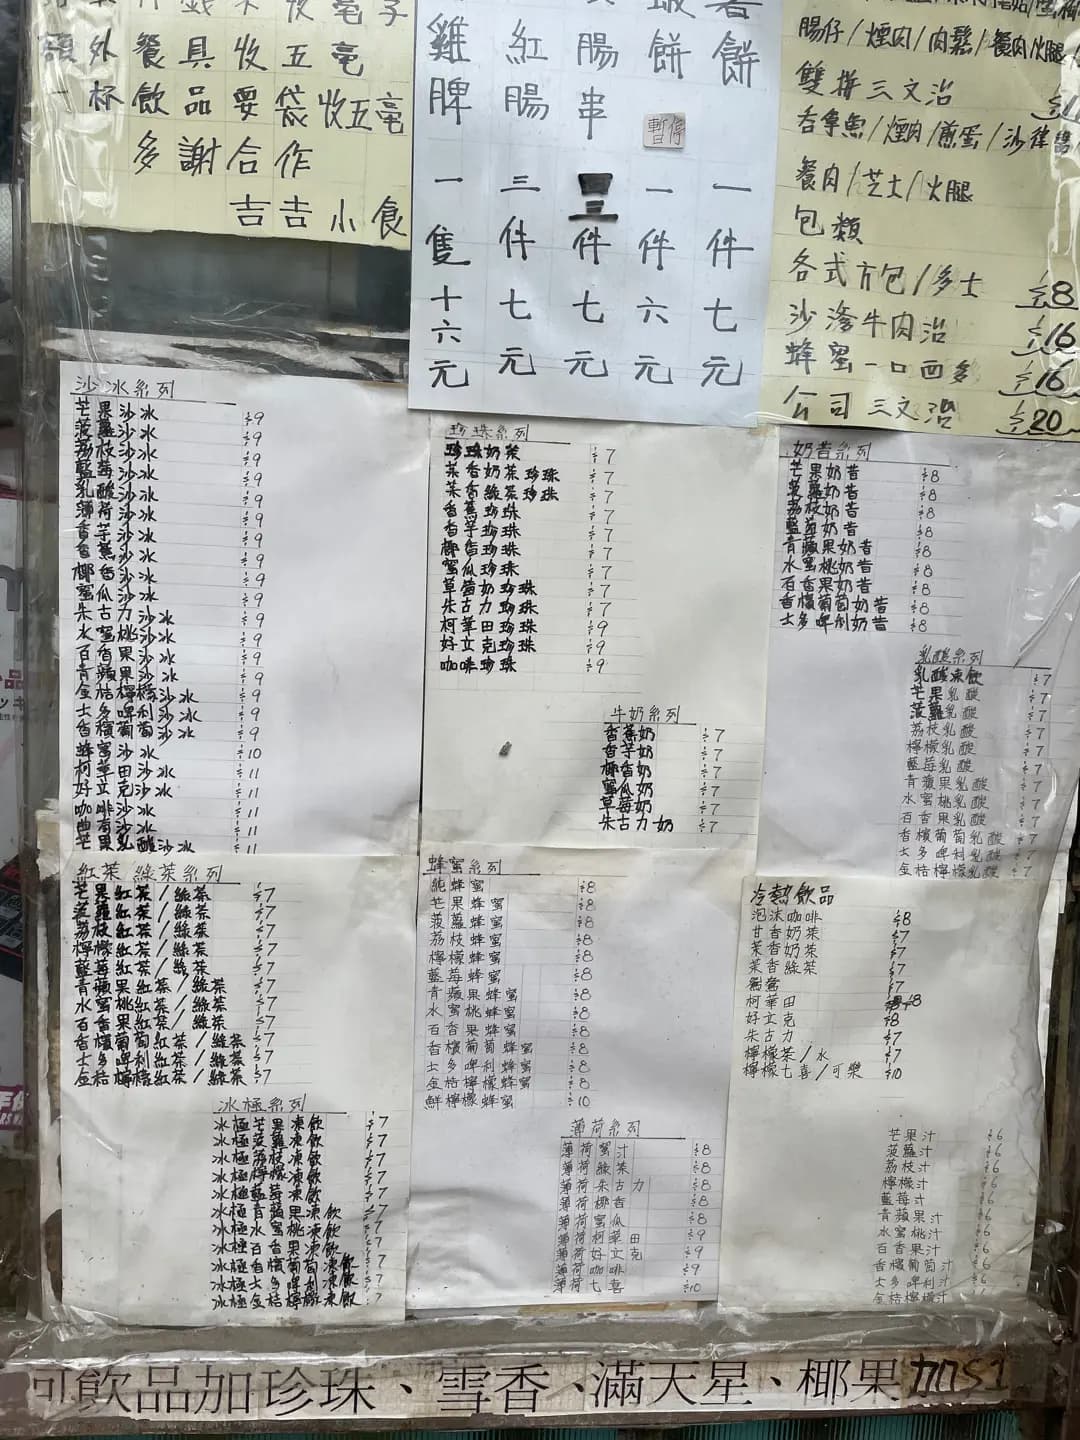 餐具收五毫
外杯飲品要袋收五毫
多謝合作
吉吉小食
雞脾一隻十六元
紅腸三件七元
腸串三件七元
餅一件六元
暫停
餅一件七元
腸仔/煙肉/肉鬆/餐肉/火腿
雙拼三文治
吞拿魚/煙肉/煎蛋/沙律醬
餐肉/芝士/火腿
包類
各式方包/多士 $8
沙嗲牛肉治 $16
蜂蜜一口西多 $16
公司三文治 $20
沙冰系列
芒果沙冰 $9
菠蘿沙冰 $9
荔枝沙冰 $9
藍莓沙冰 $9
乳酸沙冰 $9
薄荷沙冰 $9
香芋沙冰 $9
香蕉沙冰 $9
椰香沙冰 $9
蜜瓜沙冰 $9
朱古力沙冰 $9
水蜜桃沙冰 $9
百香果沙冰 $9
青蘋果沙冰 $9
金桔檸檬沙冰 $9
士多啤利沙冰 $9
香檳葡萄沙冰 $9
蜂蜜沙冰 $10
柯華田沙冰 $11
好立克沙冰 $11
咖啡沙冰 $11
曲奇沙冰 $11
芒果乳酸沙冰 $11
珍珠系列
珍珠奶茶 $7
茶香奶茶珍珠 $7
茶香綠茶珍珠 $7
香蕉珍珠 $7
香芋珍珠 $7
椰香珍珠 $7
蜜瓜珍珠 $7
草莓奶珍珠 $7
朱古力珍珠 $7
柯華田珍珠 $9
好立克珍珠 $9
咖啡珍珠 $9
牛奶系列
香蕉奶 $7
香芋奶 $7
椰香奶 $7
蜜瓜奶 $7
草莓奶 $7
朱古力奶 $7
奶昔系列
芒果奶昔 $8
菠蘿奶昔 $8
荔枝奶昔 $8
藍莓奶昔 $8
青蘋果奶昔 $8
水蜜桃奶昔 $8
百香果奶昔 $8
香檳葡萄奶昔 $8
士多啤利奶昔 $8
乳酸系列
乳酸凍飲 $7
芒果乳酸 $7
菠蘿乳酸 $7
荔枝乳酸 $7
檸檬乳酸 $7
藍莓乳酸 $7
青蘋果乳酸 $7
水蜜桃乳酸 $7
百香果乳酸 $7
香檳葡萄乳酸 $7
士多啤利乳酸 $7
金桔檸檬乳酸 $7
紅茶 綠茶系列
芒果紅茶/綠茶 $7
菠蘿紅茶/綠茶 $7
荔枝紅茶/綠茶 $7
檸檬紅茶/綠茶 $7
藍莓紅茶/綠茶 $7
青蘋果紅茶/綠茶 $7
水蜜桃紅茶/綠茶 $7
百香果紅茶/綠茶 $7
香檳葡萄紅茶/綠茶 $7
士多啤利紅茶/綠茶 $7
金桔檸檬紅茶/綠茶 $7
冰極系列
冰極芒果凍飲 $7
冰極菠蘿凍飲 $7
冰極荔枝凍飲 $7
冰極檸檬凍飲 $7
冰極藍莓凍飲 $7
冰極青蘋果凍飲 $7
冰極水蜜桃凍飲 $7
冰極百香果凍飲 $7
冰極香檳葡萄凍飲 $7
冰極士多啤利凍飲 $7
冰極金桔檸檬凍飲 $7
蜂蜜系列
純蜂蜜 $8
芒果蜂蜜 $8
菠蘿蜂蜜 $8
荔枝蜂蜜 $8
檸檬蜂蜜 $8
藍莓蜂蜜 $8
青蘋果蜂蜜 $8
水蜜桃蜂蜜 $8
百香果蜂蜜 $8
香檳葡萄蜂蜜 $8
士多啤利蜂蜜 $8
金桔檸檬蜂蜜 $8
鮮檸檬蜂蜜 $10
薄荷系列
薄荷蜜汁 $8
薄荷綠茶 $8
薄荷朱古力 $8
薄荷椰香 $8
薄荷蜜瓜 $8
薄荷柯華田 $9
薄荷好立克 $9
薄荷咖啡 $9
薄荷七喜 $10
冷熱飲品
泡沫咖啡 $8
甘香奶茶 $7
茶香奶茶 $7
茶香綠茶 $7
鴛鴦 $7
柯華田 $8
好立克 $8
朱古力 $7
檸檬茶/水 $7
檸檬七喜/可樂 $10
芒果汁 $6
菠蘿汁 $6
荔枝汁 $6
檸檬汁 $6
藍莓汁 $6
青蘋果汁 $6
水蜜桃汁 $6
百香果汁 $6
香檳葡萄汁 $6
士多啤利汁 $6
金桔檸檬汁
可飲品加珍珠、雪香、滿天星、椰果加$1